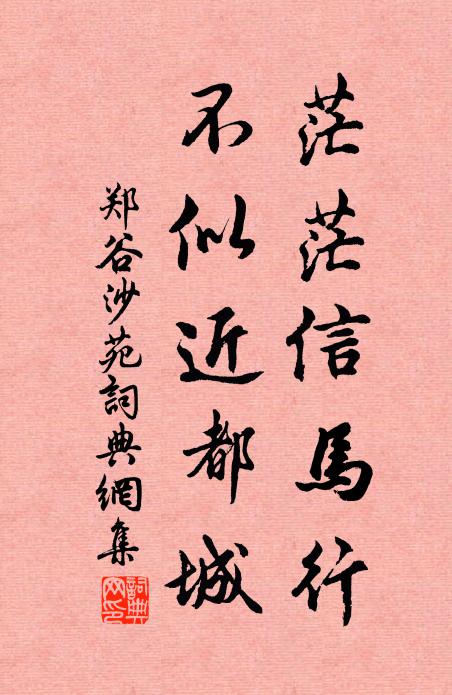 茫茫信馬行
不似近都城
郑谷沙苑詞典網集
詞典網印